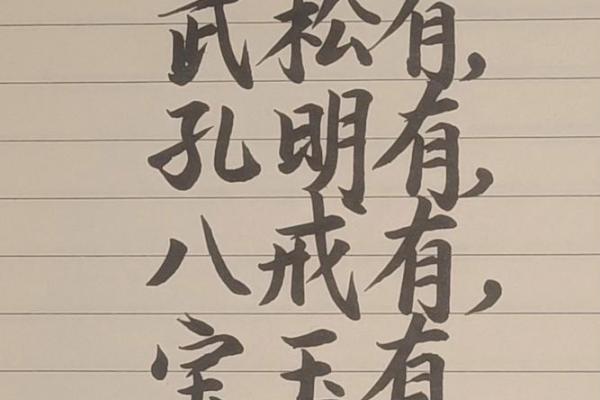 武松有，
孔明有，
八戒有，
宝玉有